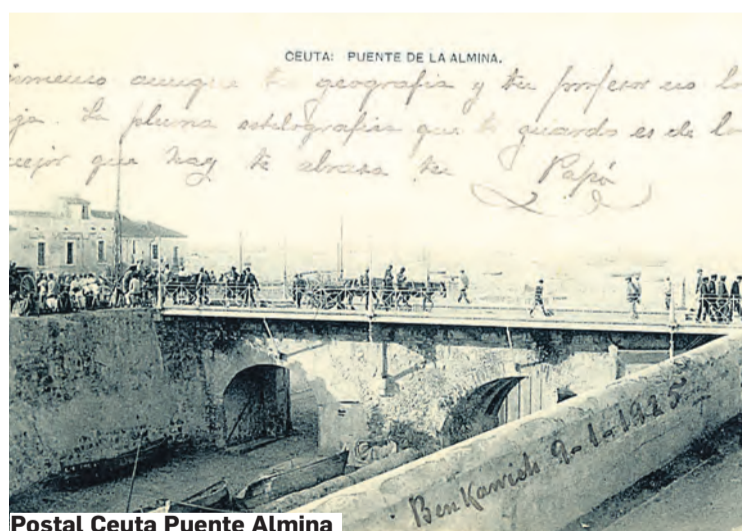 CEUTA: PUENTE DE LA ALMINA.
aunque tu geografia y tu profesor no lo
La pluma estilografica que te guardo es de lo
mejor que hay te abraza tu Papá
Ben Karrich 9-1-1925
Postal Ceuta Puente Almina